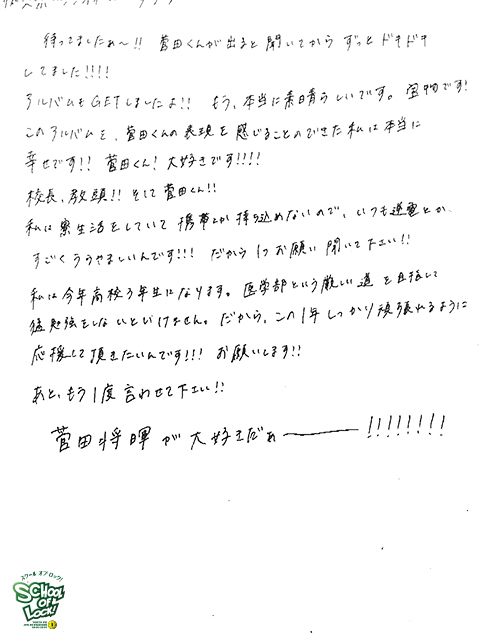 待ってましたぁ〜!! 菅田くんが出ると聞いてから ずっと ドキドキ
してました!!!!
アルバムもGETしましたよ!! もう、本当に素晴らしいです。宝物です!
このアルバムを、菅田くんの表現を感じることのできた私は本当に
幸せです!! 菅田くん! 大好きです!!!!
校長、教頭!! そして菅田くん!!
私は寮生活をしていて携帯とか持ち込めないので、いつも逆電とか
すごくうらやましいんです!!! だから1つお願い聞いて下さい!!
私は今年高校3年生になります。医学部という厳しい道を目指して
猛勉強をしないといけません。だから、この1年しっかり頑張れるように
応援して頂きたいんです!!! お願いします!!
あと、もう1度言わせて下さい!!
菅田将暉が大好きだぁ――!!!!!!!!
スクール オブ ロック!
SCHOOL
OF
LOCK!